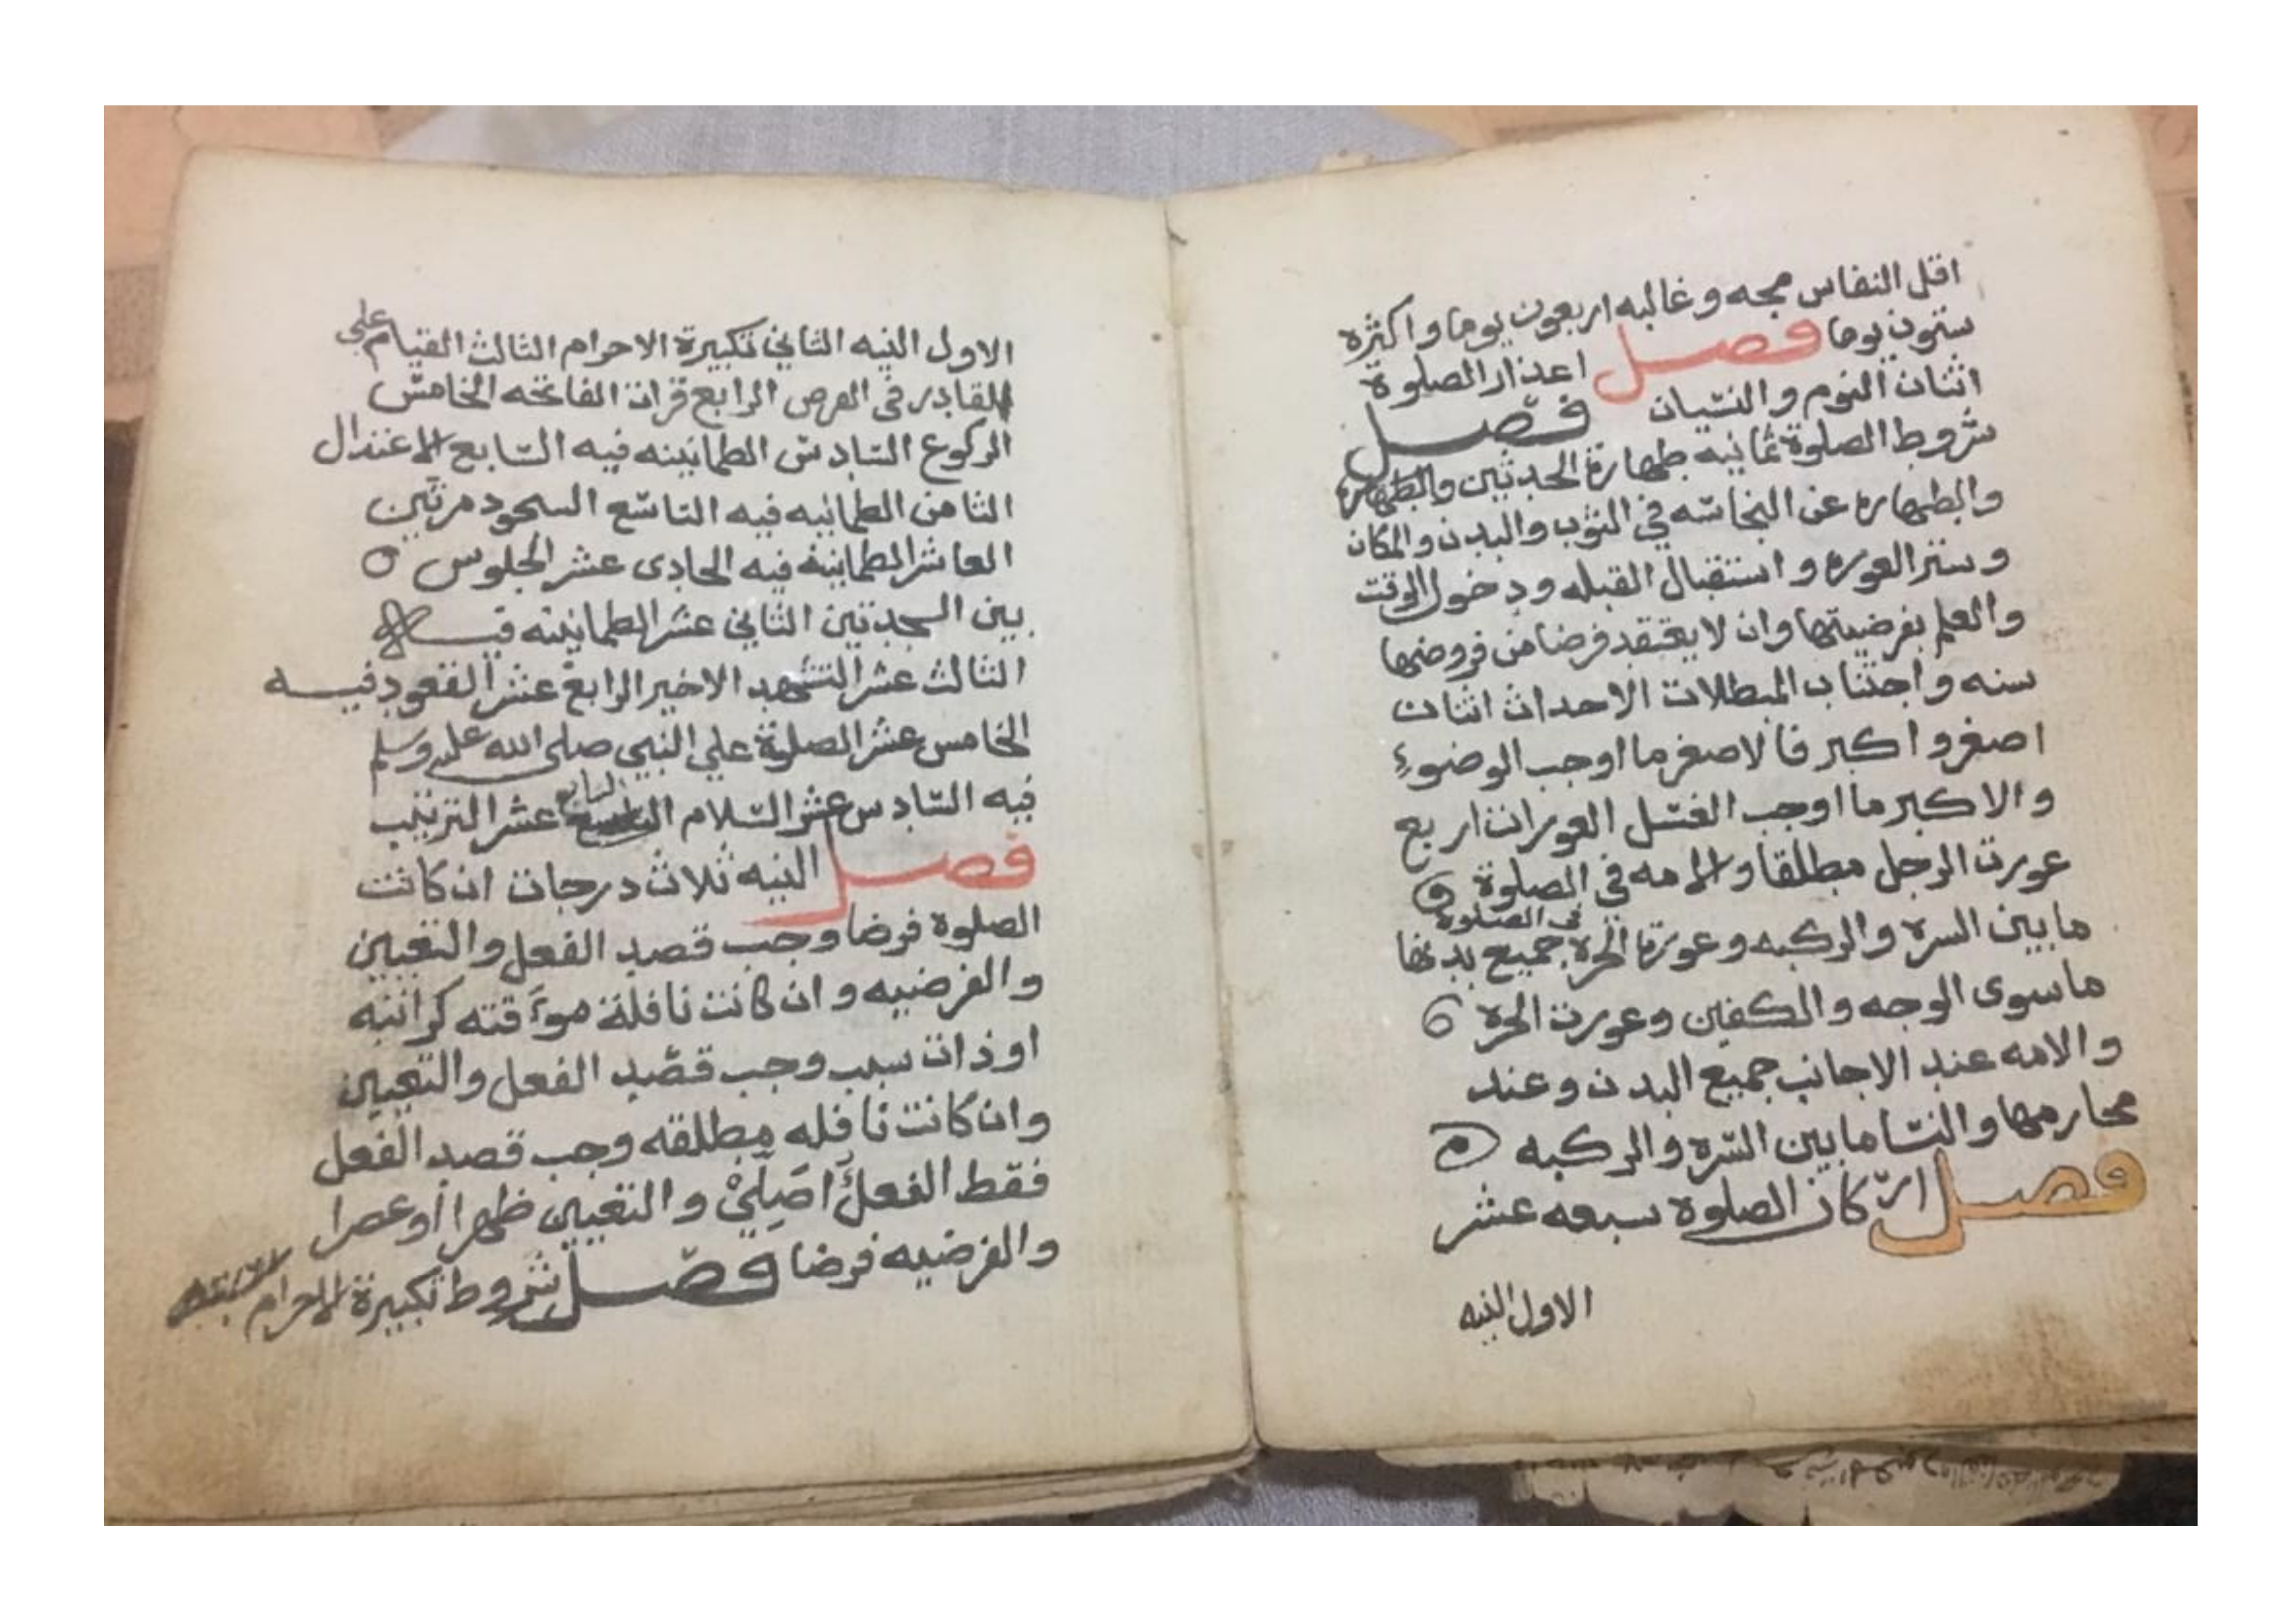 اقل النفاس مجه وغالبه اربعون يوما واكثره
ستون يوما فصل اعذار الصلوة
اثنان النوم والنسيان فصل
شروط الصلوة ثمانيه طهارة الحدثين والطهارة
والطهاره عن النجاسه في الثوب والبدن والمكان
وستر العوره واستقبال القبله ودخول الوقت
والعلم بفرضيتها وان لا يعتقد فرضا من فروضها
سنه واجتناب المبطلات الاحداث اثنان
اصغر واكبر فالاصغر ما اوجب الوضوء
والاكبر ما اوجب الغسل العورات اربع
عورت الرجل مطلقا والامه في الصلوة
ما بين السره والركبه وعورة الحرة في الصلوة جميع بدنها
ما سوى الوجه والكفين وعورت الحرة
والامه عند الاجانب جميع البدن وعند
محارمها والنسا ما بين السره والركبه
فصل اركان الصلوة سبعه عشر
الاول النيه
الاول النيه الثاني تكبيرة الاحرام الثالث القيام علي
القادر في الفرض الرابع قرات الفاتحه الخامس
الركوع السادس الطمانينه فيه السابع الاعتدال
الثامن الطمانيه فيه التاسع السجود مرتين
العاشر الطمانينة فيه الحادى عشر الجلوس
بين السجدتين الثاني عشر الطمانينه فيه
الثالث عشر التشهد الاخير الرابع عشر القعود فيه
الخامس عشر الصلوة علي النبي صلى الله عليه وسلم
فيه السادس عشر السلام السابع عشر الترتيب
فصل النيه ثلاث درجات ان كانت
الصلوة فرضا وجب قصد الفعل والتعيين
والفرضيه وان كانت نافلة موءقته كراتبه
او ذات سبب وجب قصد الفعل والتعيين
وان كانت نافله مطلقه وجب قصد الفعل
فقط الفعل اصلي والتعيين ظهرا او عصرا
والفرضيه فرضا فصل شروط تكبيرة الاحرام